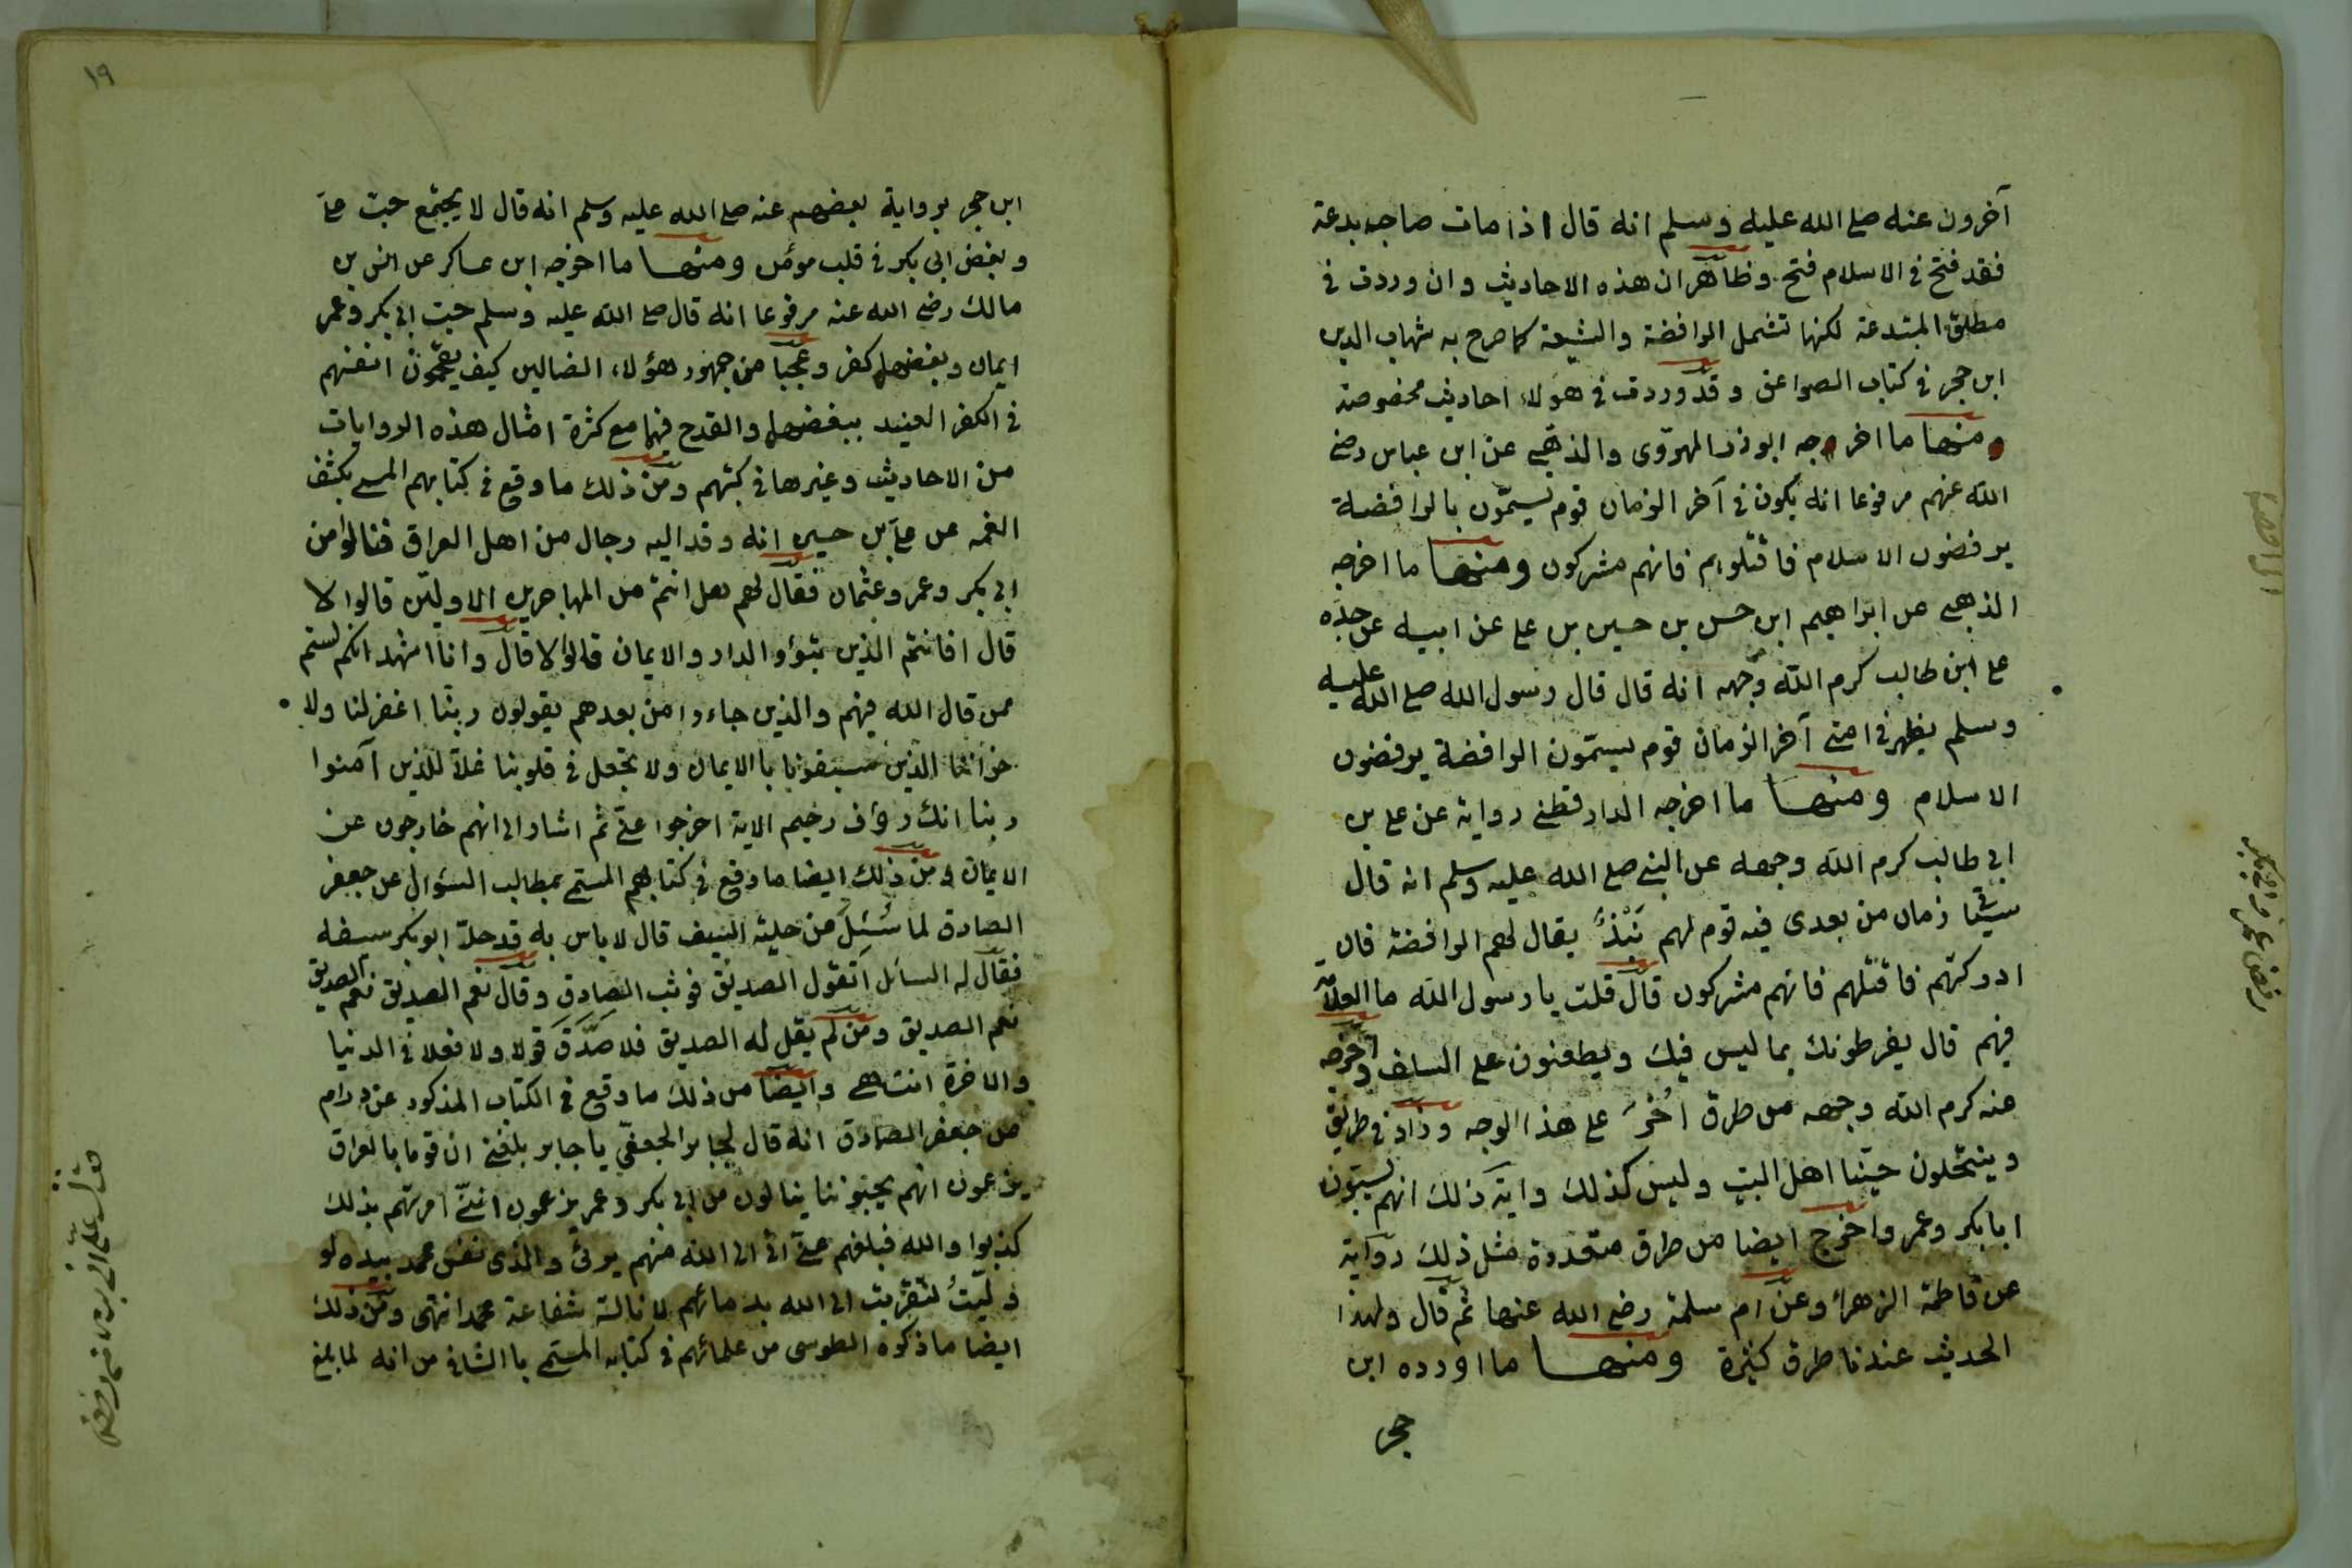 آخرون عنه صلى الله عليه وسلم انه قال اذا مات صاحب بدعة
فقد فتح في الاسلام فتح وظاهر ان هذه الاحاديث وان وردت في
مطلق المبتدعة لكنها تشمل الرافضة والشيعة كما صرح به شهاب الدين
ابن حجر في كتاب الصواعق وقد وردت في هؤلاء احاديث مخصوصة
ومنها ما اخرجه ابو ذر الهروى والذهبي عن ابن عباس رضي
الله عنهم مرفوعا انه يكون في آخر الزمان قوم يسمّون بالرافضة
يرفضون الاسلام فاقتلوهم فانهم مشركون ومنها ما اخرجه
الذهبي عن ابراهيم ابن حسن بن حسين بن علي عن ابيه عن جدّه
علي ابن طالب كرم الله وجهه انه قال قال رسول الله صلى الله عليه
وسلم يظهر في امتي آخر الزمان قوم يسمّون الرافضة يرفضون
الاسلام ومنها ما اخرجه الدارقطني رواية عن علي بن
ابي طالب كرم الله وجهه عن النبي صلى الله عليه وسلم انه قال
زمان من بعدى فيه قوم لهم نَبْذٌ يقال لهم الرافضة فان
ادركتهم فاقتلهم فانهم مشركون قال قلت يا رسول الله ما العلامة
فيهم قال يفرطونك بما ليس فيك ويطعنون على السلف واخرجه
عنه كرم الله وجهه من طرق اُخرَ على هذا الوجه وزاد في طريق
وينتحلون حبّنا اهل البيت وليس كذلك واية ذلك انهم يسبّون
ابا بكر وعمر واخرج ايضا من طرق متعددة مثل ذلك رواية
عن فاطمة الزهراء وعن ام سلمة رضي الله عنها ثم قال ولهذا
الحديث عندنا طرق كثيرة ومنها ما اورده ابن
حجر
١٩
ابن حجر برواية بعضهم عنه صلى الله عليه وسلم انه قال لا يجتمع حبّ علي
وبغض ابي بكر في قلب مؤمن ومنها ما اخرجه ابن عساكر عن انس بن
مالك رضي الله عنه مرفوعا انه قال صلى الله عليه وسلم حبّ ابي بكر وعمر
ايمان وبغضهما كفر وعجبا من جمهور هؤلاء الضالين كيف يقحمون انفسهم
في الكفر العنيد ببغضهما والقدح فيهما مع كثرة امثال هذه الروايات
من الاحاديث وغيرها في كتبهم ومن ذلك ما وقع في كتابهم المسمى بكشف
الغمه عن علي بن حسين انه وفد اليه رجال من اهل العراق فنالوا من
ابي بكر وعمر وعثمان فقال لهم هل انتم من المهاجرين الاولين قالوا لا
قال افانتم الذين تبوؤ الدار والايمان قالوا لا قال وانا اشهد انكم لستم
ممن قال الله فيهم والذين جاءوا من بعدهم يقولون ربنا اغفر لنا ولا
خواننا الذين سبقونا بالايمان ولا تجعل في قلوبنا غلّا للذين آمنوا
ربنا انك رؤف رحيم الاية اخرجوا عني ثم اشار الى انهم خارجون عن
الايمان ومن ذلك ايضا ما وقع في كتابهم المسمى بمطالب السؤال عن جعفر
الصادق لما سُئِلَ عن حلية السيف قال لا باس به قد حلّا ابو بكر سيفه
فقال له السائل اَتقول الصديق فوثب الصادق وقال نعم الصديق نعم الصديق
نعم الصديق ومن لم يقل له الصديق فلا صَدَّقَ قولا ولا فعلا في الدنيا
والاخرة انتهى وايضا من ذلك ما وقع في الكتاب المذكور
عن جعفر الصادق انه قال لجابر الجعفي يا جابر بلغني ان قوما بالعراق
يزعمون انهم يحبوننا ينالون من ابي بكر وعمر يزعمون انني امرتهم بذلك
كذبوا والله فبلغهم عني اني الى الله منهم برئ والذى نفس محمد بيده لو
وُلّيتُ لتقربت الى الله بدمائهم لا نالت شفاعة محمد انتهى ومن ذلك
ايضا ما ذكره الطوسى من علمائهم في كتابه المسمى با الشافي من انه لما بلغ